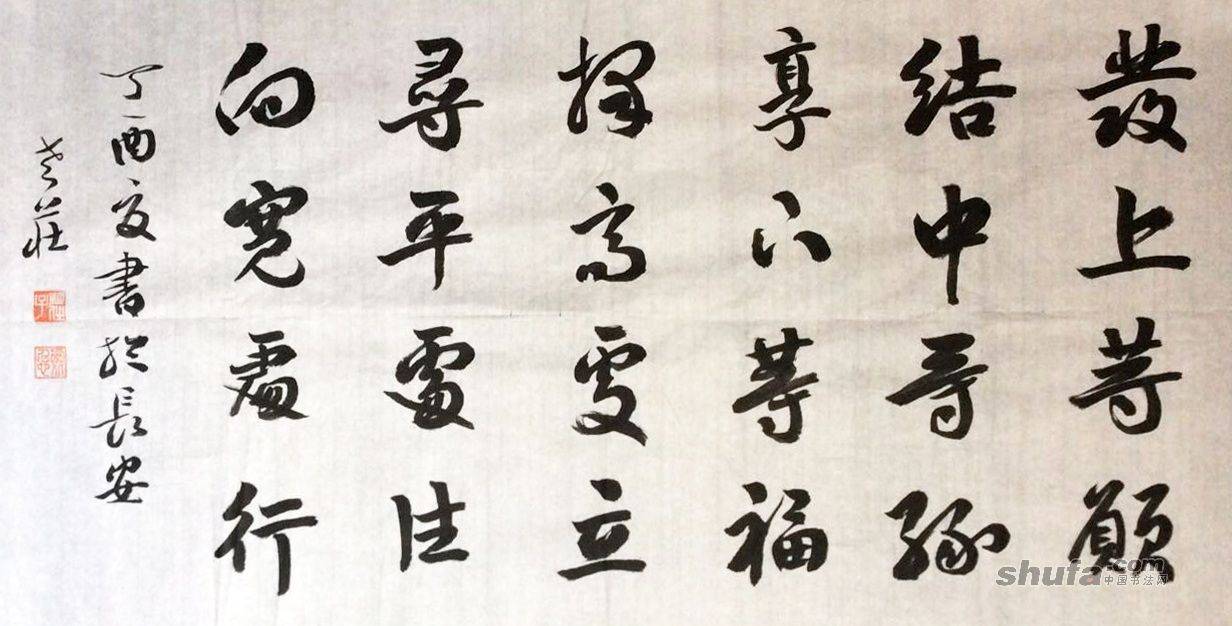 發上等願
結中等緣
享下等福
擇高處立
尋平處住
向寬處行
丁酉夏書於長安
老莊
shufa.com
中国书法网